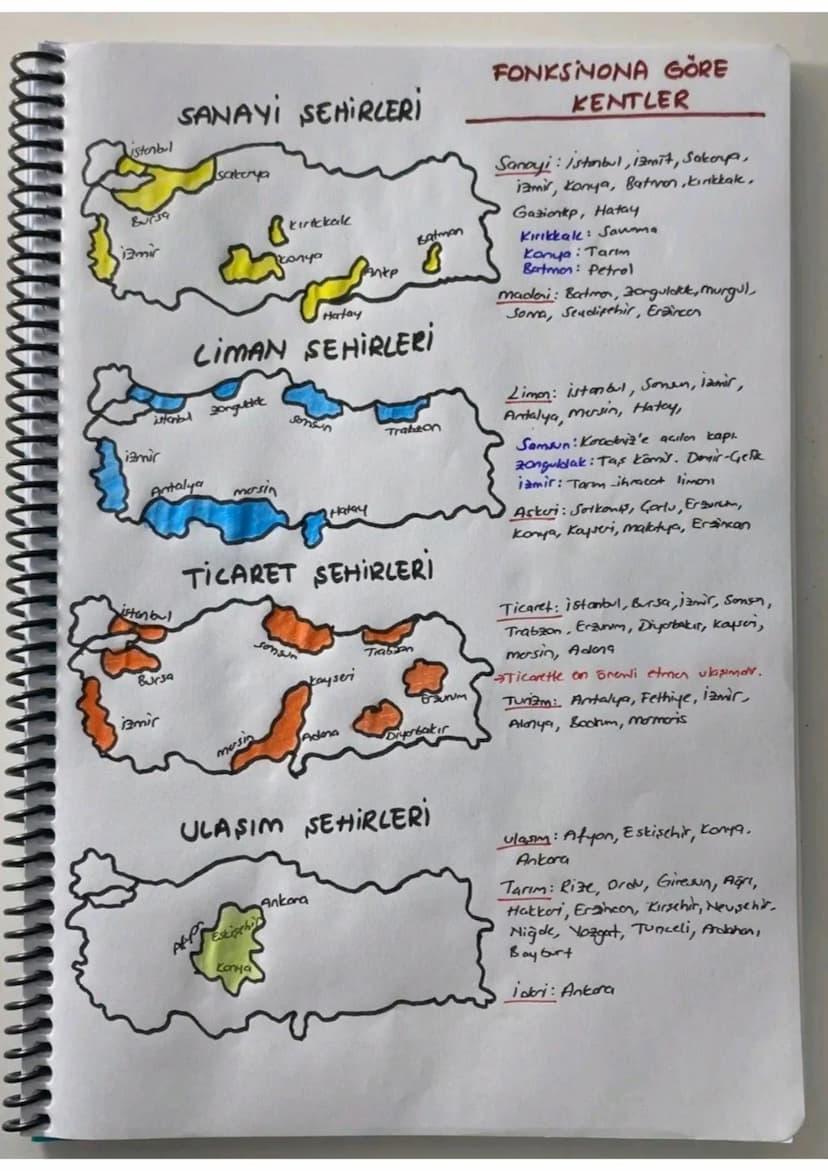 FONKSİYONA GÖRE
KENTLER
SANAYİ ŞEHİRLERİ
istanbul
sakarya
Bursa
izmir
Kırıkkale
Konya
Antep
Batman
Hatay
Sanayi: istanbul, izmit, Sakarya,
izmir, Konya, Batman, Kırıkkale,
Gaziantep, Hatay
Kırıkkale: Savunma
Konya: Tarım
Batman: Petrol
maden: Batman, Zonguldak, murgul,
Soma, Seydişehir, Erzincan
LİMAN ŞEHİRLERİ
istanbul
zonguldak
Samsun
Trabzon
izmir
Antalya
mersin
Hatay
Liman: istanbul, Samsun, izmir,
Antalya, mersin, Hatay,
Samsun: Karadeniz'e açılan kapı
zonguldak: Taş Kömür. Demir-Çelik
izmir: Tarım ihracat limanı
Askeri: Sarıkamış, Çorlu, Erzurum,
Konya, Kayseri, malatya, Erzincan
TİCARET ŞEHİRLERİ
istanbul
Bursa
izmir
Samsun
Trabzon
Kayseri
Erzurum
mersin
Adana
Diyarbakır
Ticaret: istanbul, Bursa, izmir, Samsun,
Trabzon, Erzurum, Diyarbakır, Kayseri,
mersin, Adana
→Ticarette en önemli etmen ulaşımdır.
Turizm: Antalya, Fethiye, izmir,
Alanya, Bodrum, marmaris
ULAŞIM ŞEHİRLERİ
Ankara
Eskişehir
Konya
ulaşım: Afyon, Eskişehir, Konya.
Ankara
Tarım: Rize, Ordu, Giresun, Ağrı,
Hakkari, Erzincan, Kırşehir, Nevşehir.
Niğde, Yozgat, Tunceli, Ardahan,
Bayburt
idari: Ankara